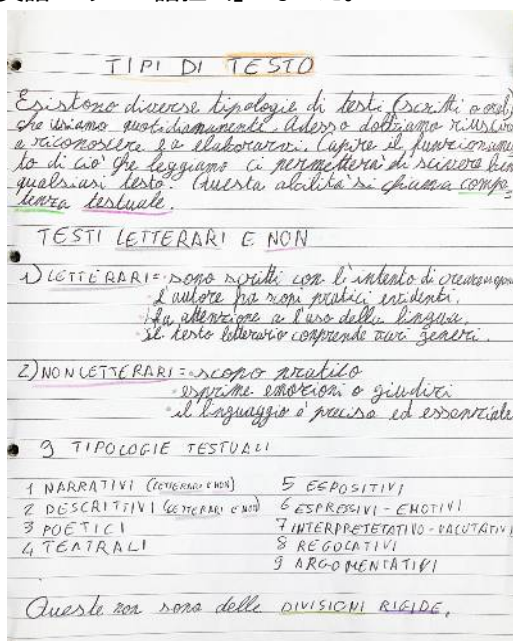 TIPI DI TESTO
Esistono diverse tipologie di testi (scritti o orali)
che usiamo quotidianamente. Adesso dobbiamo riuscire
a riconoscere e a elaborarvi. Capire il funzionamen
to di ciò che leggiamo ci permetterà di scivere ben
qualsiasi testo. Questa abilità si chiama compe
tenza testuale.
TESTI LETTERARI E NON
1) LETTERARI = sono scritti con l'intento di creare
· l'autore ha scopi pratici evidenti.
· fa attenzione a l'uso della lingua.
· il testo letterario comprende vari generi.
2) NON LETTERARI = scopo pratico
· esprime emozioni o giudizi
· il linguaggio è preciso ed essenziale
9 TIPOLOGIE TESTUALI
1 NARRATIVI (LETTERARI E NON)
2 DESCRITTIVI (LETTERARI E NON)
3 POETICI
4 TEATRALI
5 ESPOSITIVI
6 ESPRESSIVI - EMOTIVI
7 INTERPRETETATIVO - VALUTATIVI
8 REGOLATIVI
9 ARGOMENTATIVI
Queste non sono delle DIVISIONI RIGIDE.